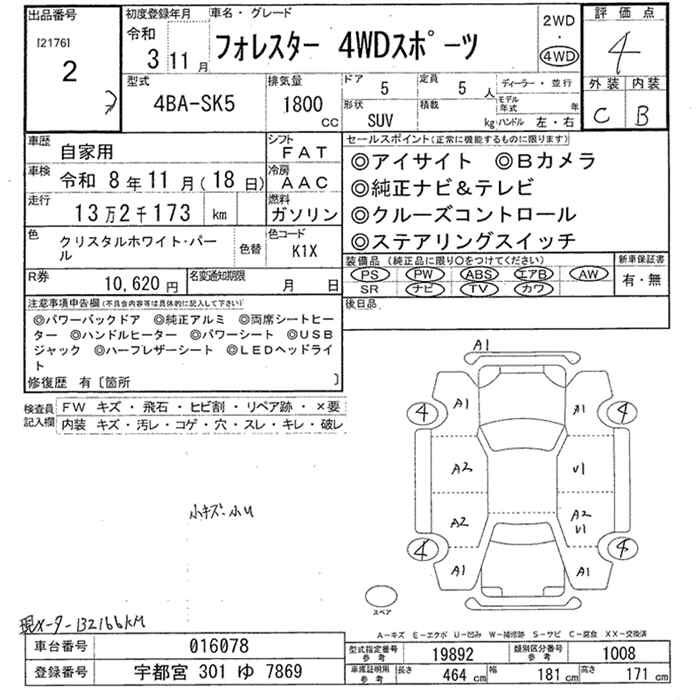 出品番号
[2176]
2
初度登録年月
令和
3 11 月
車名・グレード
フォレスター 4WDスポーツ
2WD
・
4WD
評価点
4
外装 内装
C B
型式
4BA-SK5
排気量
1800 CC
ドア 5
定員 5 人
ディーラー・並行
モデル年式 年
形状 SUV
積載 kg
ハンドル 左・右
車歴 自家用
シフト FAT
車検 令和 8 年 11 月 (18 日)
冷房 AAC
走行 13 万 2 千 173 km
燃料 ガソリン
色 クリスタルホワイト・パール
色替
色コード K1X
R券 10,620 円
名変通知期限 月 日
セールスポイント(正常に機能するものに限ります)
◎アイサイト ◎Bカメラ
◎純正ナビ&テレビ
◎クルーズコントロール
◎ステアリングスイッチ
装備品(純正品に限り○をつけてください)
PS PW ABS エアB AW
SR ナビ TV カワ
新車保証書
有・無
後日品
注意事項申告欄(不具合内容等は具体的に記入して下さい)
◎パワーバックドア ◎純正アルミ ◎両席シートヒー
ター ◎ハンドルヒーター ◎パワーシート ◎USB
ジャック ◎ハーフレザーシート ◎LEDヘッドライ
ト
修復歴 有〔箇所 〕
検査員記入欄
FW キズ・飛石・ヒビ割・リペア跡・×要
内装 キズ・汚レ・コゲ・穴・スレ・キレ・破レ
小キズ・小U
A1
4 A1 A1 4
A2 U1
A2 A2
U1
4 A1 A1 4
スペア
現メーター132166KM
A-キズ E-エクボ U-凹み W-補修跡 S-サビ C-腐食 XX-交換済
車台番号 016078
登録番号 宇都宮 301 ゆ 7869
型式指定番号参考 19892
類別区分番号参考 1008
車庫証明用参考
長さ 464 cm
幅 181 cm
高さ 171 cm